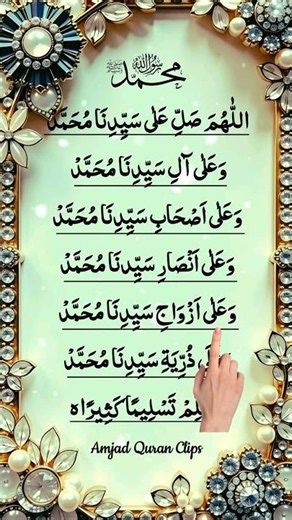 محمد رسول الله ﷺ
اللّٰهُمَ صَلِّ عَلٰى سَيِّدِنَا مُحَمَّدْ
وَعَلٰى آلِ سَيِّدِنَا مُحَمَّدْ
وَعَلٰى اَصْحَابِ سَيِّدِنَا مُحَمَّدْ
وَعَلٰى اَنْصَارِ سَيِّدِنَا مُحَمَّدْ
وَعَلٰى اَزْوَاجِ سَيِّدِنَا مُحَمَّدْ
ذُرِّيَةِ سَيِّدِنَا مُحَمَّدْ
تَسْلِيمًا كَثِيرًاه
Amjad Quran Clips